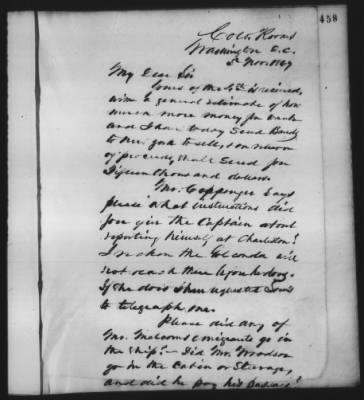 458
Col. Rooms
Washington D.C.
5th Nov. 1869
My Dear Sir
Yours of the 4th is received,
with a general estimate of how
much more money for
and I have today send Bonds
to New York to sell, & on return
of proceeds, shall send for
Fifteen thousand dollars.
Mr. Coppenger says
please what instructions did
you give the Captain about
reporting himself at Charleston?
I reckon the Golconda will
not reach there before
If she does
to telegraph me.
Please did any of
Mr. emigrants go in
the ship? - Did Mr.
go in the Cabin or Steerage,
and did he pay his passage?